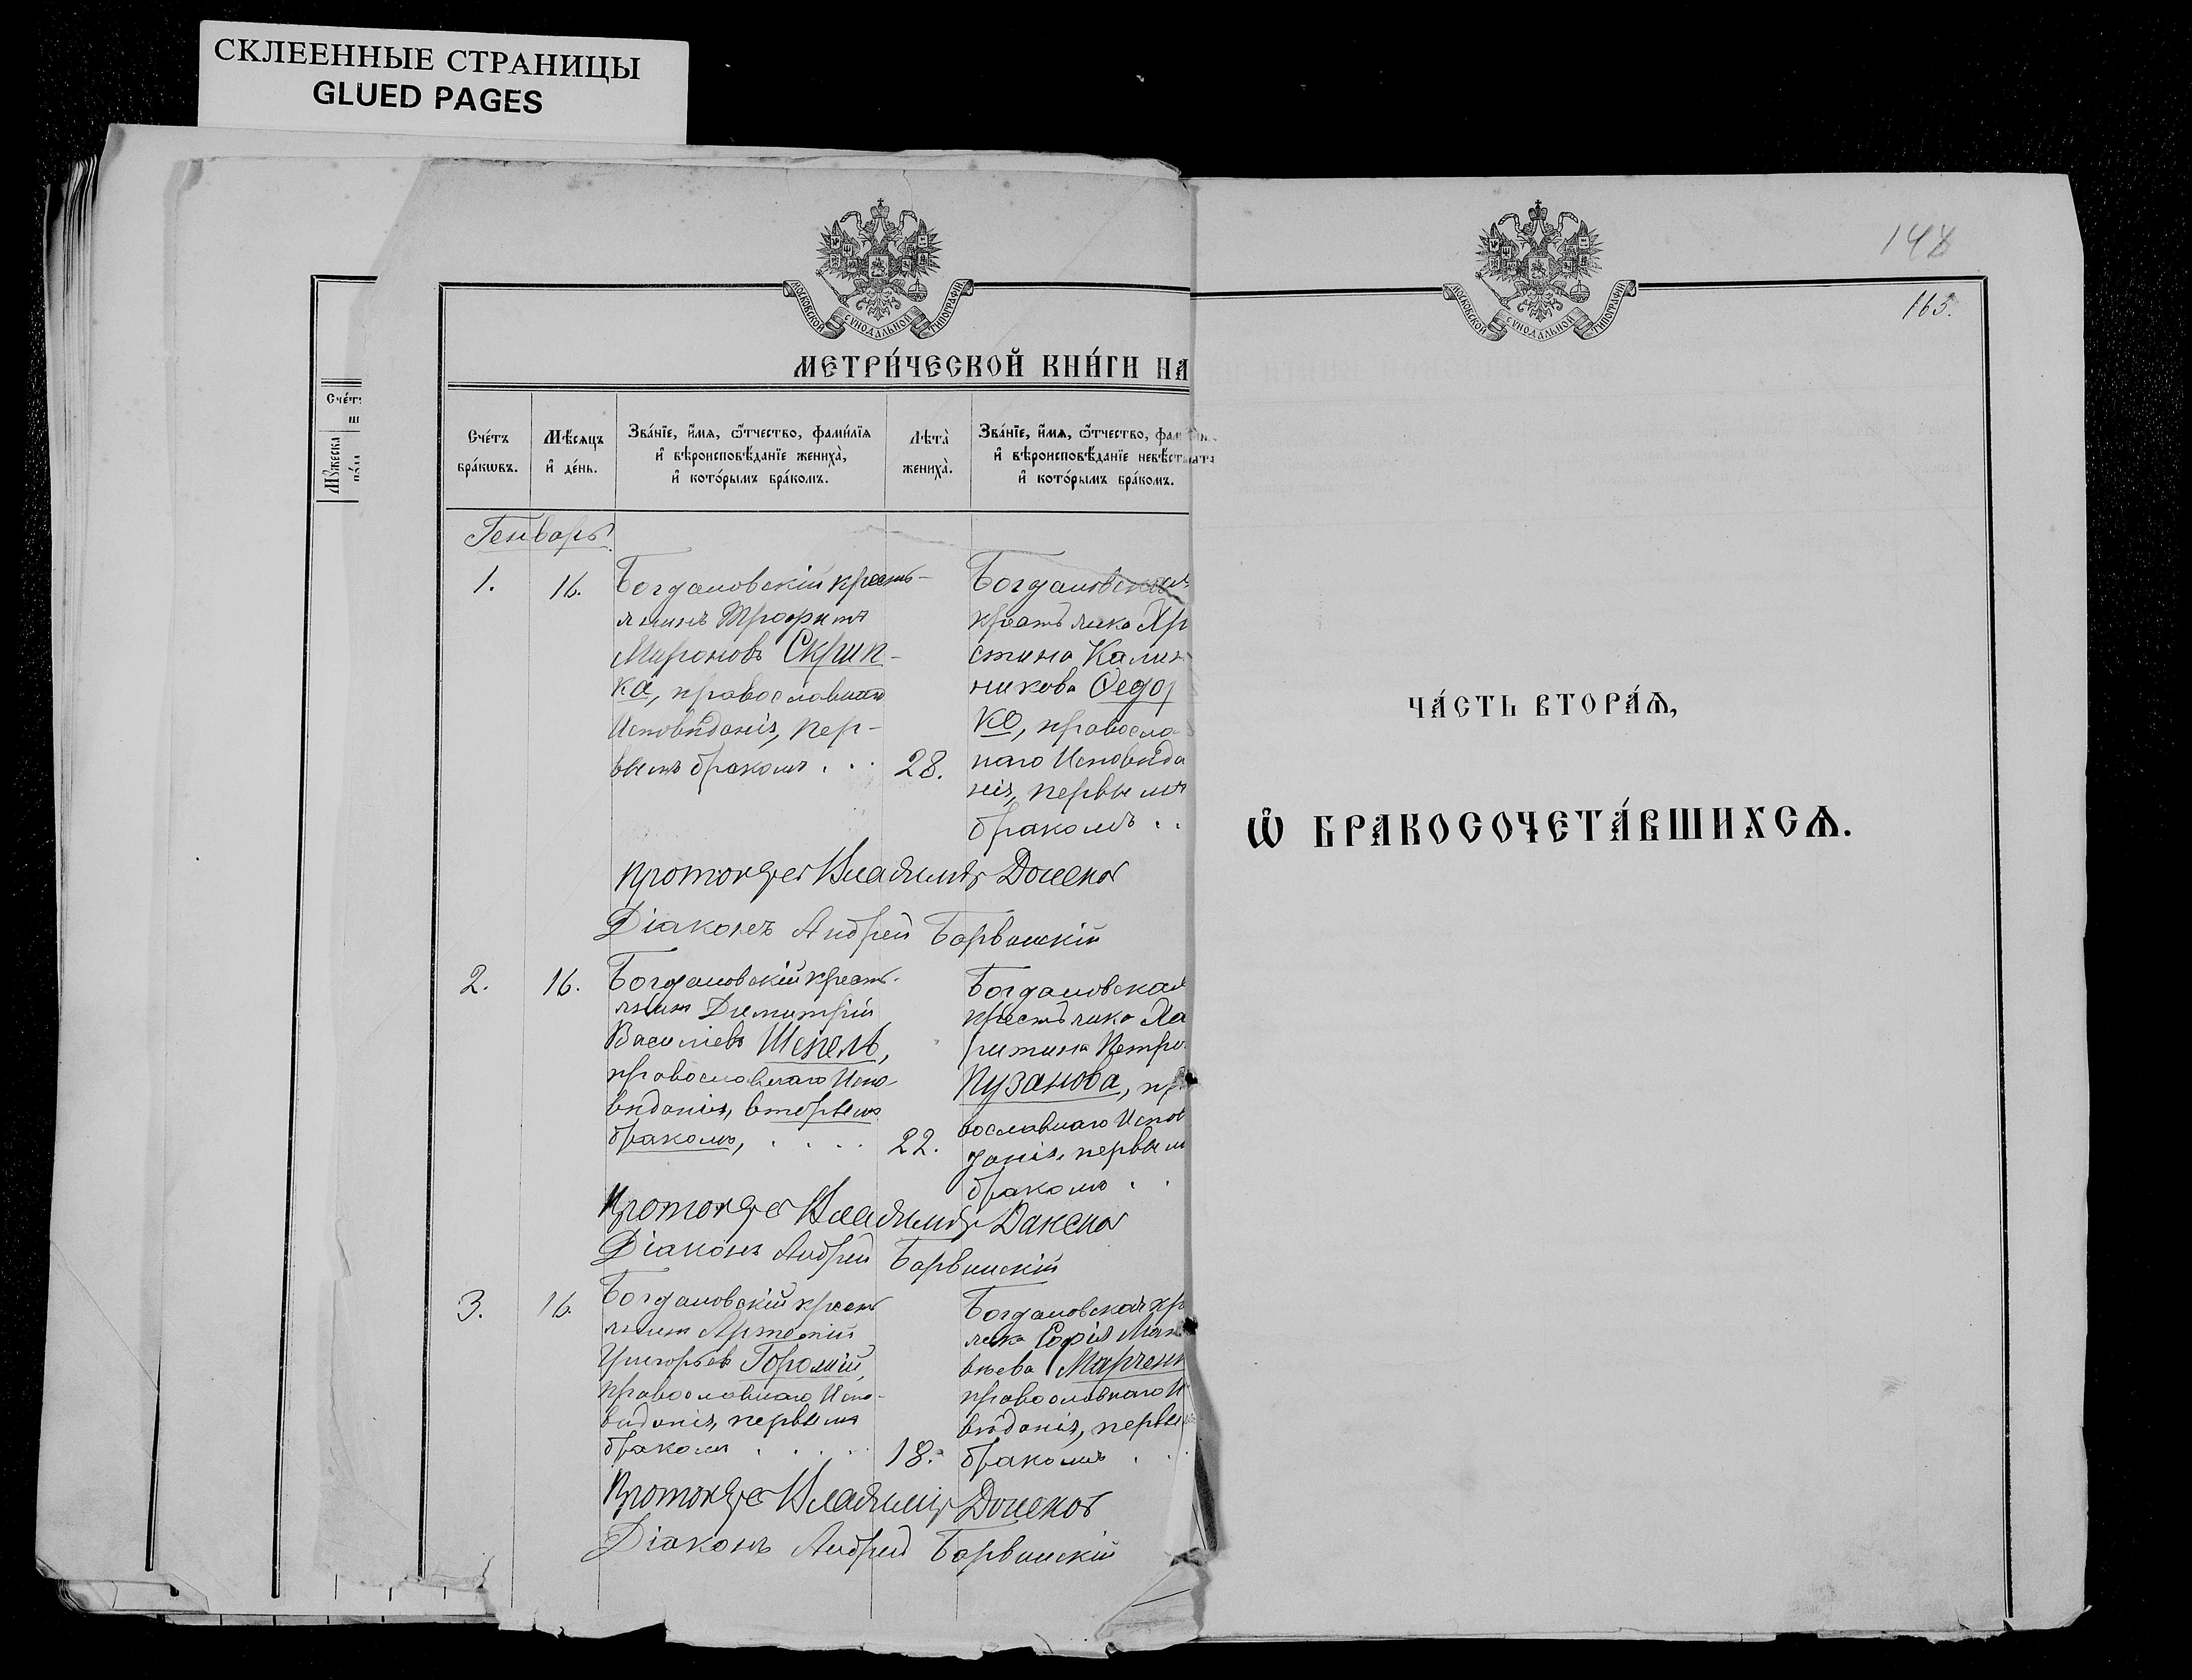 СКЛЕЕННЫЕ СТРАНИЦЫ
GLUED PAGES
148
163.
МОСКОВСКОЙ СѴНОДАЛЬНОЙ ТИПОГРАФІИ
МОСКОВСКОЙ СѴНОДАЛЬНОЙ ТИПОГРАФІИ
МЕТРИ́ЧЕСКОЙ КНИ́ГИ НА
Сче́т
Мꙋ́жеска
Сче́тъ
бра́кѡвъ.
Мѣ́сяцъ
и҆ де́нь.
Зва́нїе, и҆́мѧ, ѻ҆́тчество, фами́лїѧ
и҆ вѣроисповѣ́данїе жениха̀,
и҆ кото́рымъ бра́комъ.
Лѣта̀
жениха̀.
Зва́нїе, и҆́мѧ, ѻ҆́тчество, фам
и҆ вѣроисповѣ́данїе невѣст
и҆ кото́рымъ бра́комъ.
Генварь
1.
16.
Богдановскій кресть-
янинъ Трофимъ
Мироновъ Скрип-
ка, православнаго
Исповѣданія, пер-
вымъ бракомъ . . .
28.
Богдановская
крестьянка Хр
стина Калин
никова Ѳедор
ко, правосла
наго Исповѣда
нія, первымъ
бракомъ . .
Протоіерей Владиміръ
Діаконъ Андрей Барвинскій
2.
16.
Богдановскій кресть-
янинъ Димитрій
Василіевъ Шпель,
православнаго Испо-
вѣданія, вторымъ
бракомъ, . . . .
22.
Богдановская
крестьянка Ха
ритина Петро
Пузанова, пра
вославнаго Испов
данія, первым
бракомъ . .
Протоіерей Владиміръ
Діаконъ Андрей Барвинскій
3.
16.
Богдановскій кресть
янинъ Артемій
Григорьевъ Горолій,
православнаго Испо-
вѣданія, первымъ
бракомъ . . . .
18.
Богдановская кр
янка Софія Мат
вѣева Марченк
православнаго И
вѣданія, первы
бракомъ . .
Протоіерей Владиміръ
Діаконъ Андрей Барвинскій
ЧА́СТЬ ВТОРА́Ѧ,
Ѽ БРАКОСОЧЕТА́ВШИХСѦ.